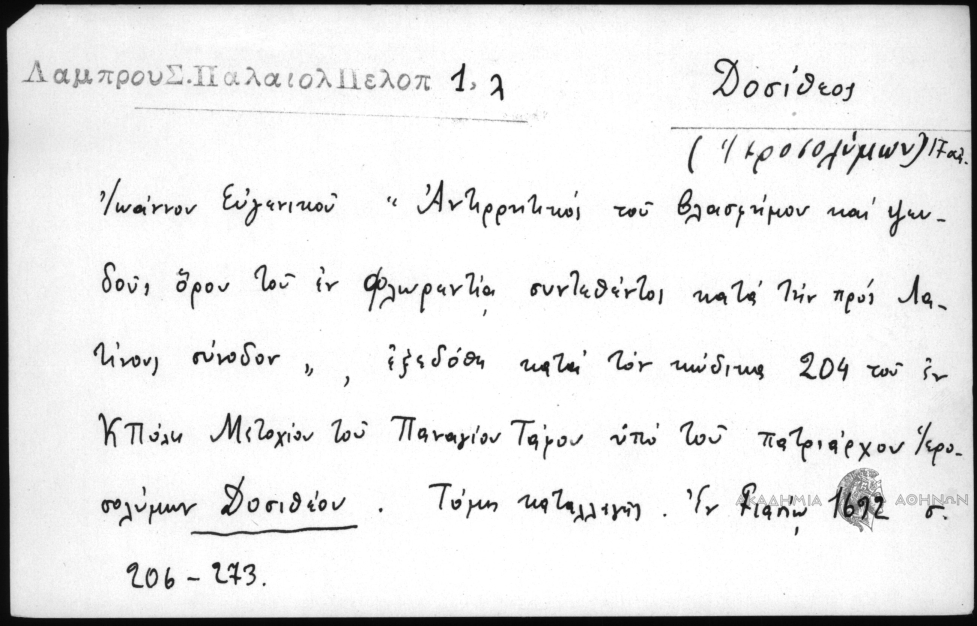 Λαμπρου Σ. Παλαιολ Πελοπ 1, λ
Δοσίθεος
(Ἱεροσολύμων) 17 αἰ.
Ἰωάννου Εὐγενικοῦ “Ἀντιρρητικός τοῦ βλασφήμου καί ψευ-
δοῦς ὅρου τοῦ ἐν Φλωρεντίᾳ συντεθέντος κατά τήν πρός Λα-
τίνους σύνοδον„, ἐξεδόθη κατά τόν κώδικα 204 τοῦ ἐν
ΚΠόλει Μετοχίου τοῦ Παναγίου Τάφου ὑπό τοῦ πατριάρχου Ἱερο-
σολύμων Δοσιθέου. Τόμος καταλλαγῆς. Ἐν Γιασίῳ 1692 σ.
ΑΚΑΔΗΜΙΑ ΑΘΗΝΩΝ
206 – 273.